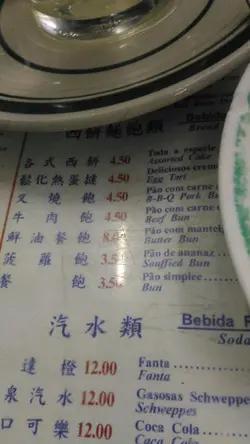 西餅麵飽類 Bread
各式西餅 4.50 Toda a especie Assorted Cake
鬆化熱蛋撻 4.50 Deliciosos creme Egg Tart
叉燒飽 4.50 Pão com carne d B-B-Q Pork Bu
牛肉飽 4.50 Pão com carne Beef Bun
鮮油餐飽 8.00 Pão com manteig Butter Bun
菠蘿飽 3.50 Pão de ananaz Souffled Bun
餐飽 3.50 Pão simples Bun
汽水類 Bebida Soda
達橙 12.00 Fanta Fanta
泉汽水 12.00 Gasosas Schweppe Schweppes
口可樂 12.00 Coca Cola Coca Cola